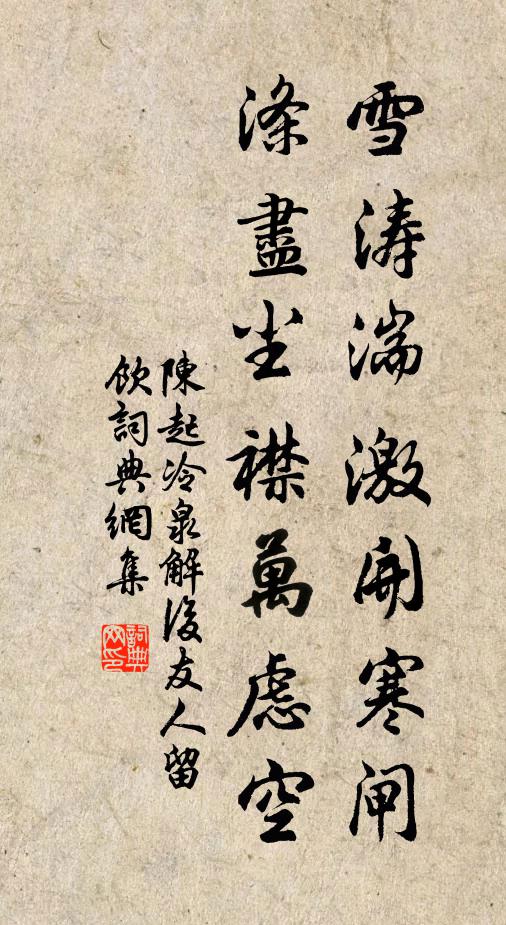 雪濤湍激開寒閘
滌盡尘襟萬慮空
陳起冷泉解後友人留
飲詞典網集
詞典
网印